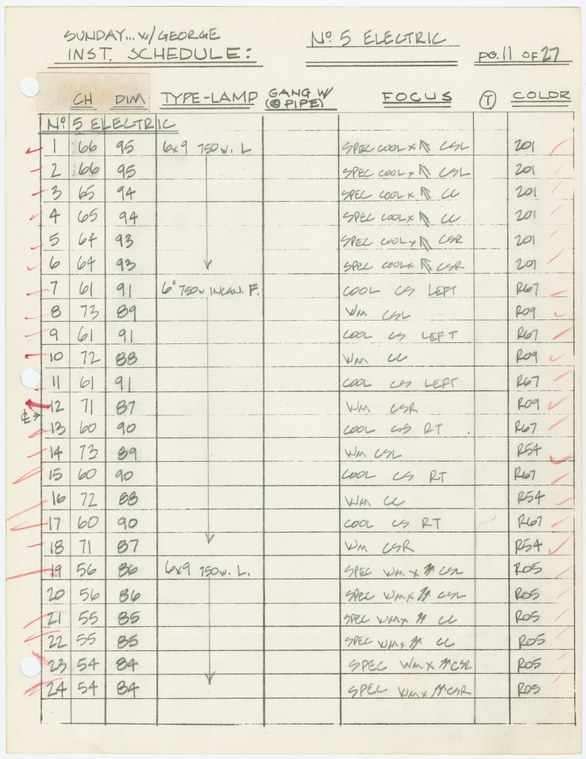 SUNDAY... W/ GEORGE
INST. SCHEDULE:
Nº 5 ELECTRIC
pg. 11 OF 27
CH DIM TYPE-LAMP GANG W/ (@ PIPE) FOCUS T COLOR
Nº 5 ELECTRIC
1 66 95 6x9 750w. L SPEC COOL x CSL 201
2 66 95 SPEC COOL x CSL 201
3 65 94 SPEC COOL x CC 201
4 65 94 SPEC COOL x CC 201
5 64 93 SPEC COOL x CSR 201
6 64 93 SPEC COOL x CSR 201
7 61 91 6" 750w INCAN. F. COOL CS LEFT R67
8 73 89 WM CSL R09
9 61 91 COOL CS LEFT R67
10 72 88 WM CC R09
11 61 91 COOL CS LEFT R67
12 71 87 WM CSR R09
13 60 90 COOL CS RT R67
14 73 89 WM CSL R54
15 60 90 COOL CS RT R67
16 72 88 WM CC R54
17 60 90 COOL CS RT R67
18 71 87 WM CSR R54
19 56 86 6x9 750w. L. SPEC WM x CSL R05
20 56 86 SPEC WM x CSL R05
21 55 85 SPEC WM x CC R05
22 55 85 SPEC WM x CC R05
23 54 84 SPEC WM x CSR R05
24 54 84 SPEC WM x CSR R05